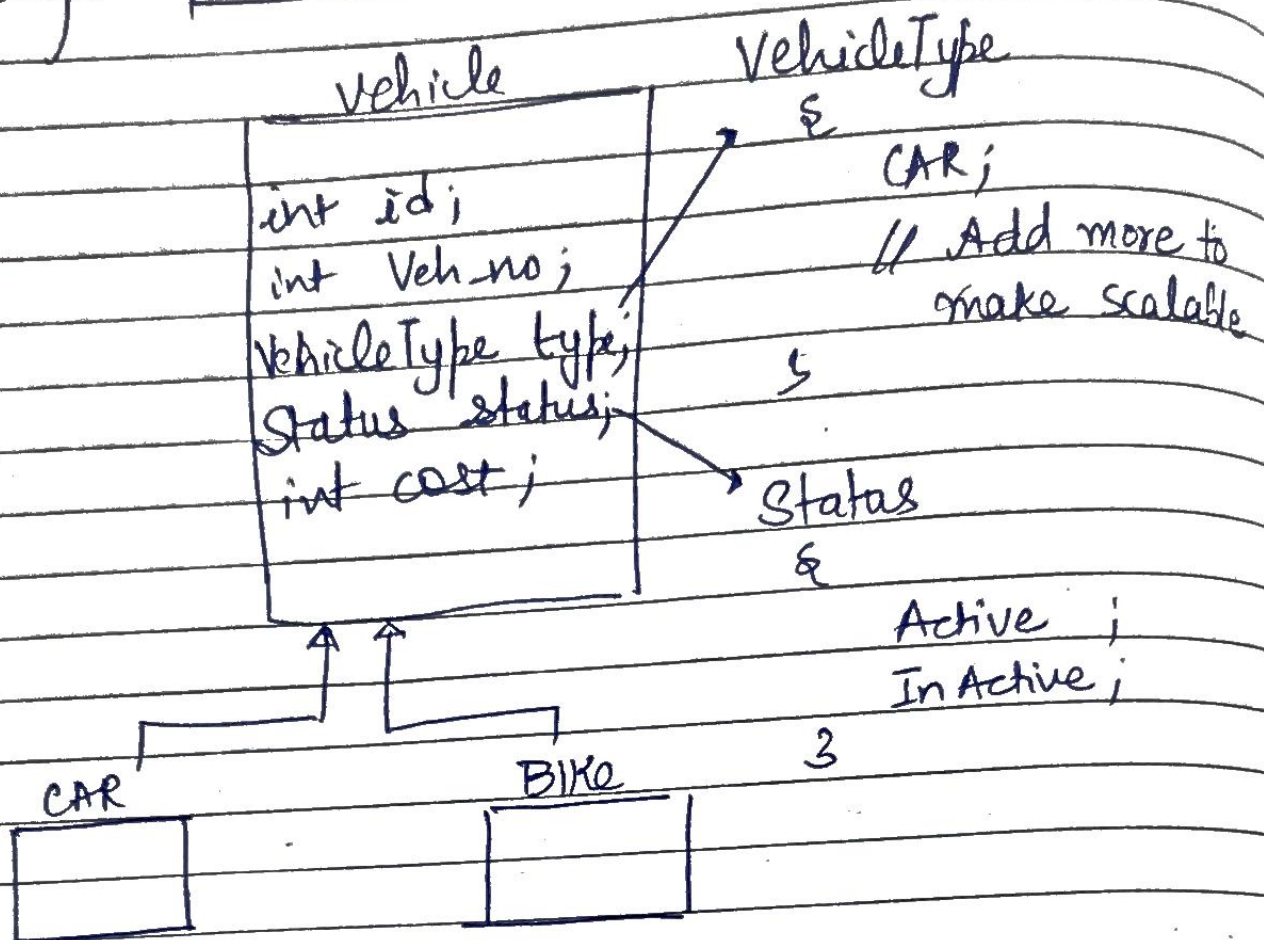 Vehicle
int id;
int Veh_no;
VehicleType type;
Status status;
int cost;
VehicleType
{
CAR;
// Add more to
make scalable
}
Status
{
Active ;
InActive;
}
CAR
BIKe